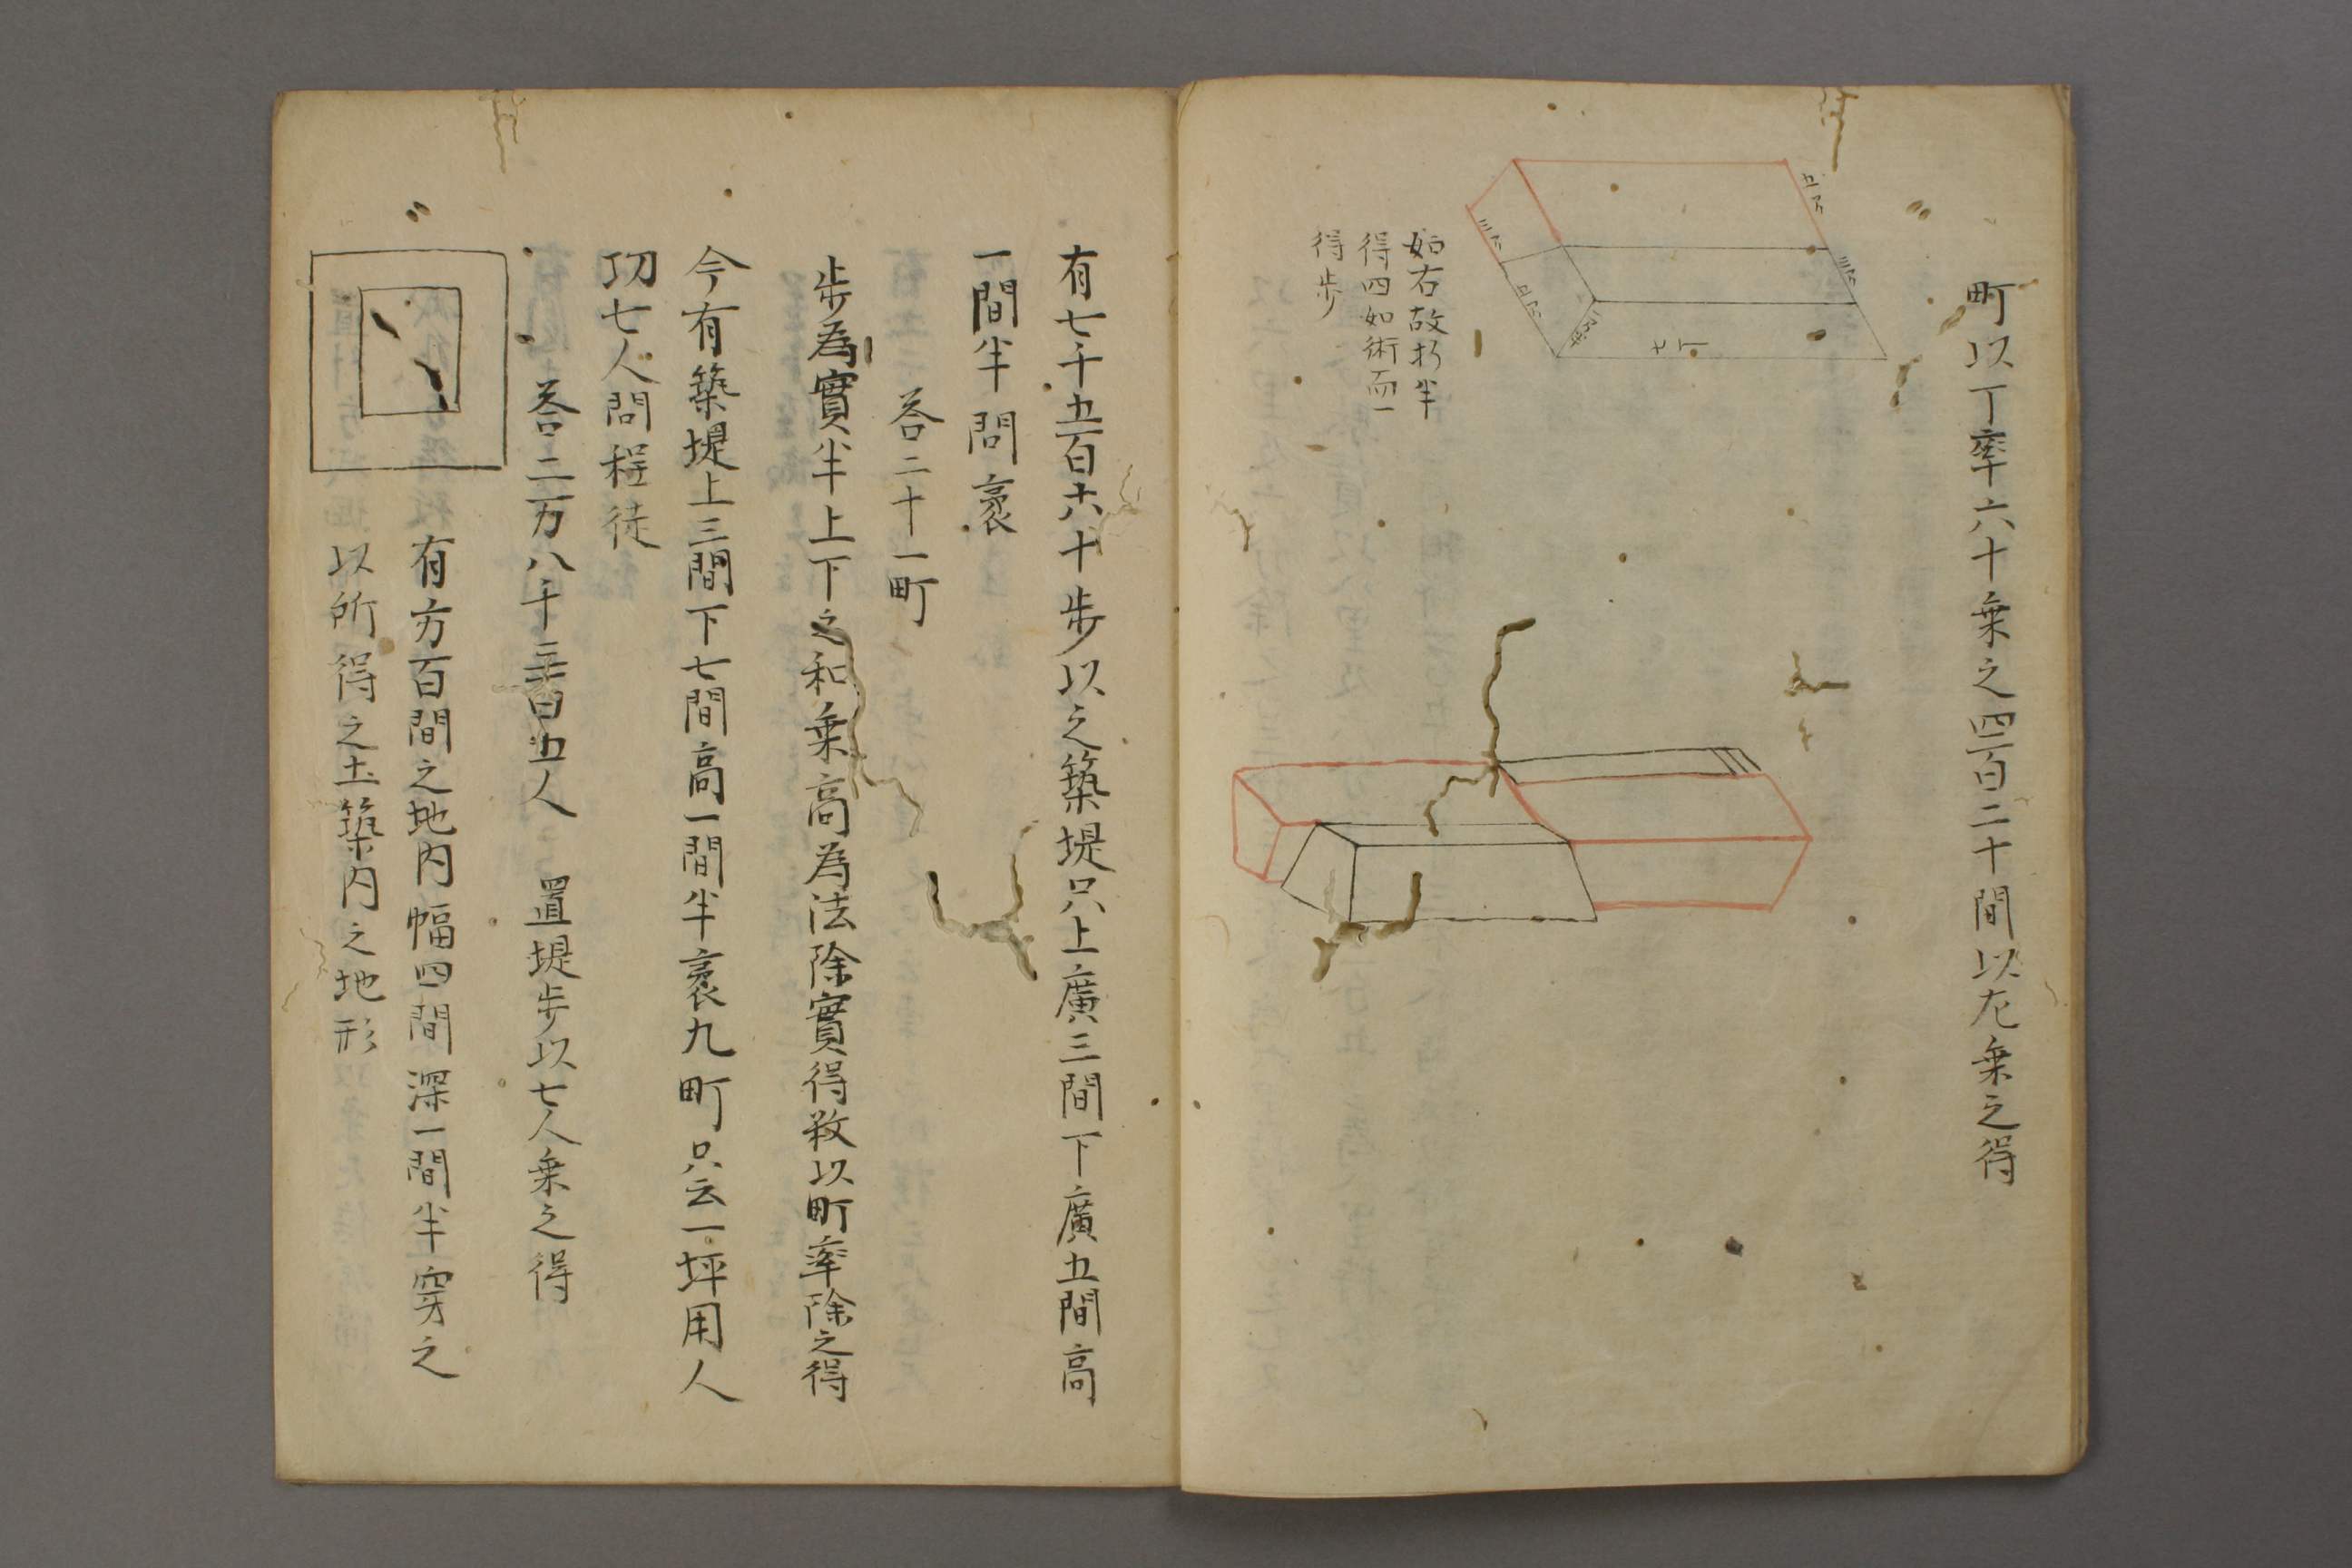 町以丁率六十乗之四百二十間以左乗之得
五間
三間
三間
五間
七丁
如右故折半
得四如術而一
得歩
有七千五百六十歩以之築堤只上廣三間下廣五間高
一間半問袤
答二十一町
歩為實半上下之和乗高為法除實得数以町率除之得
今有築堤上三間下七間高一間半袤九町只云一坪用人
功七人問程徒
答二万八千三百五人　置堤歩以七人乗之得
有方百間之地内幅四間深一間半穿之
以所得之土築内之地形